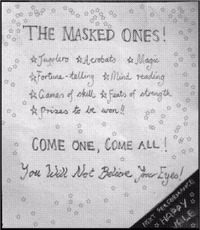 THE MASKED ONES!
☆Jugglers ☆Acrobats ☆Magic
☆Fortune-telling ☆Mind reading
☆Games of skill ☆Feats of strength
☆Prizes to be won!!
COME ONE, COME ALL!
You Will Not Believe Your Eyes!
NEXT PERFORMANCE
HAPPY
VALE